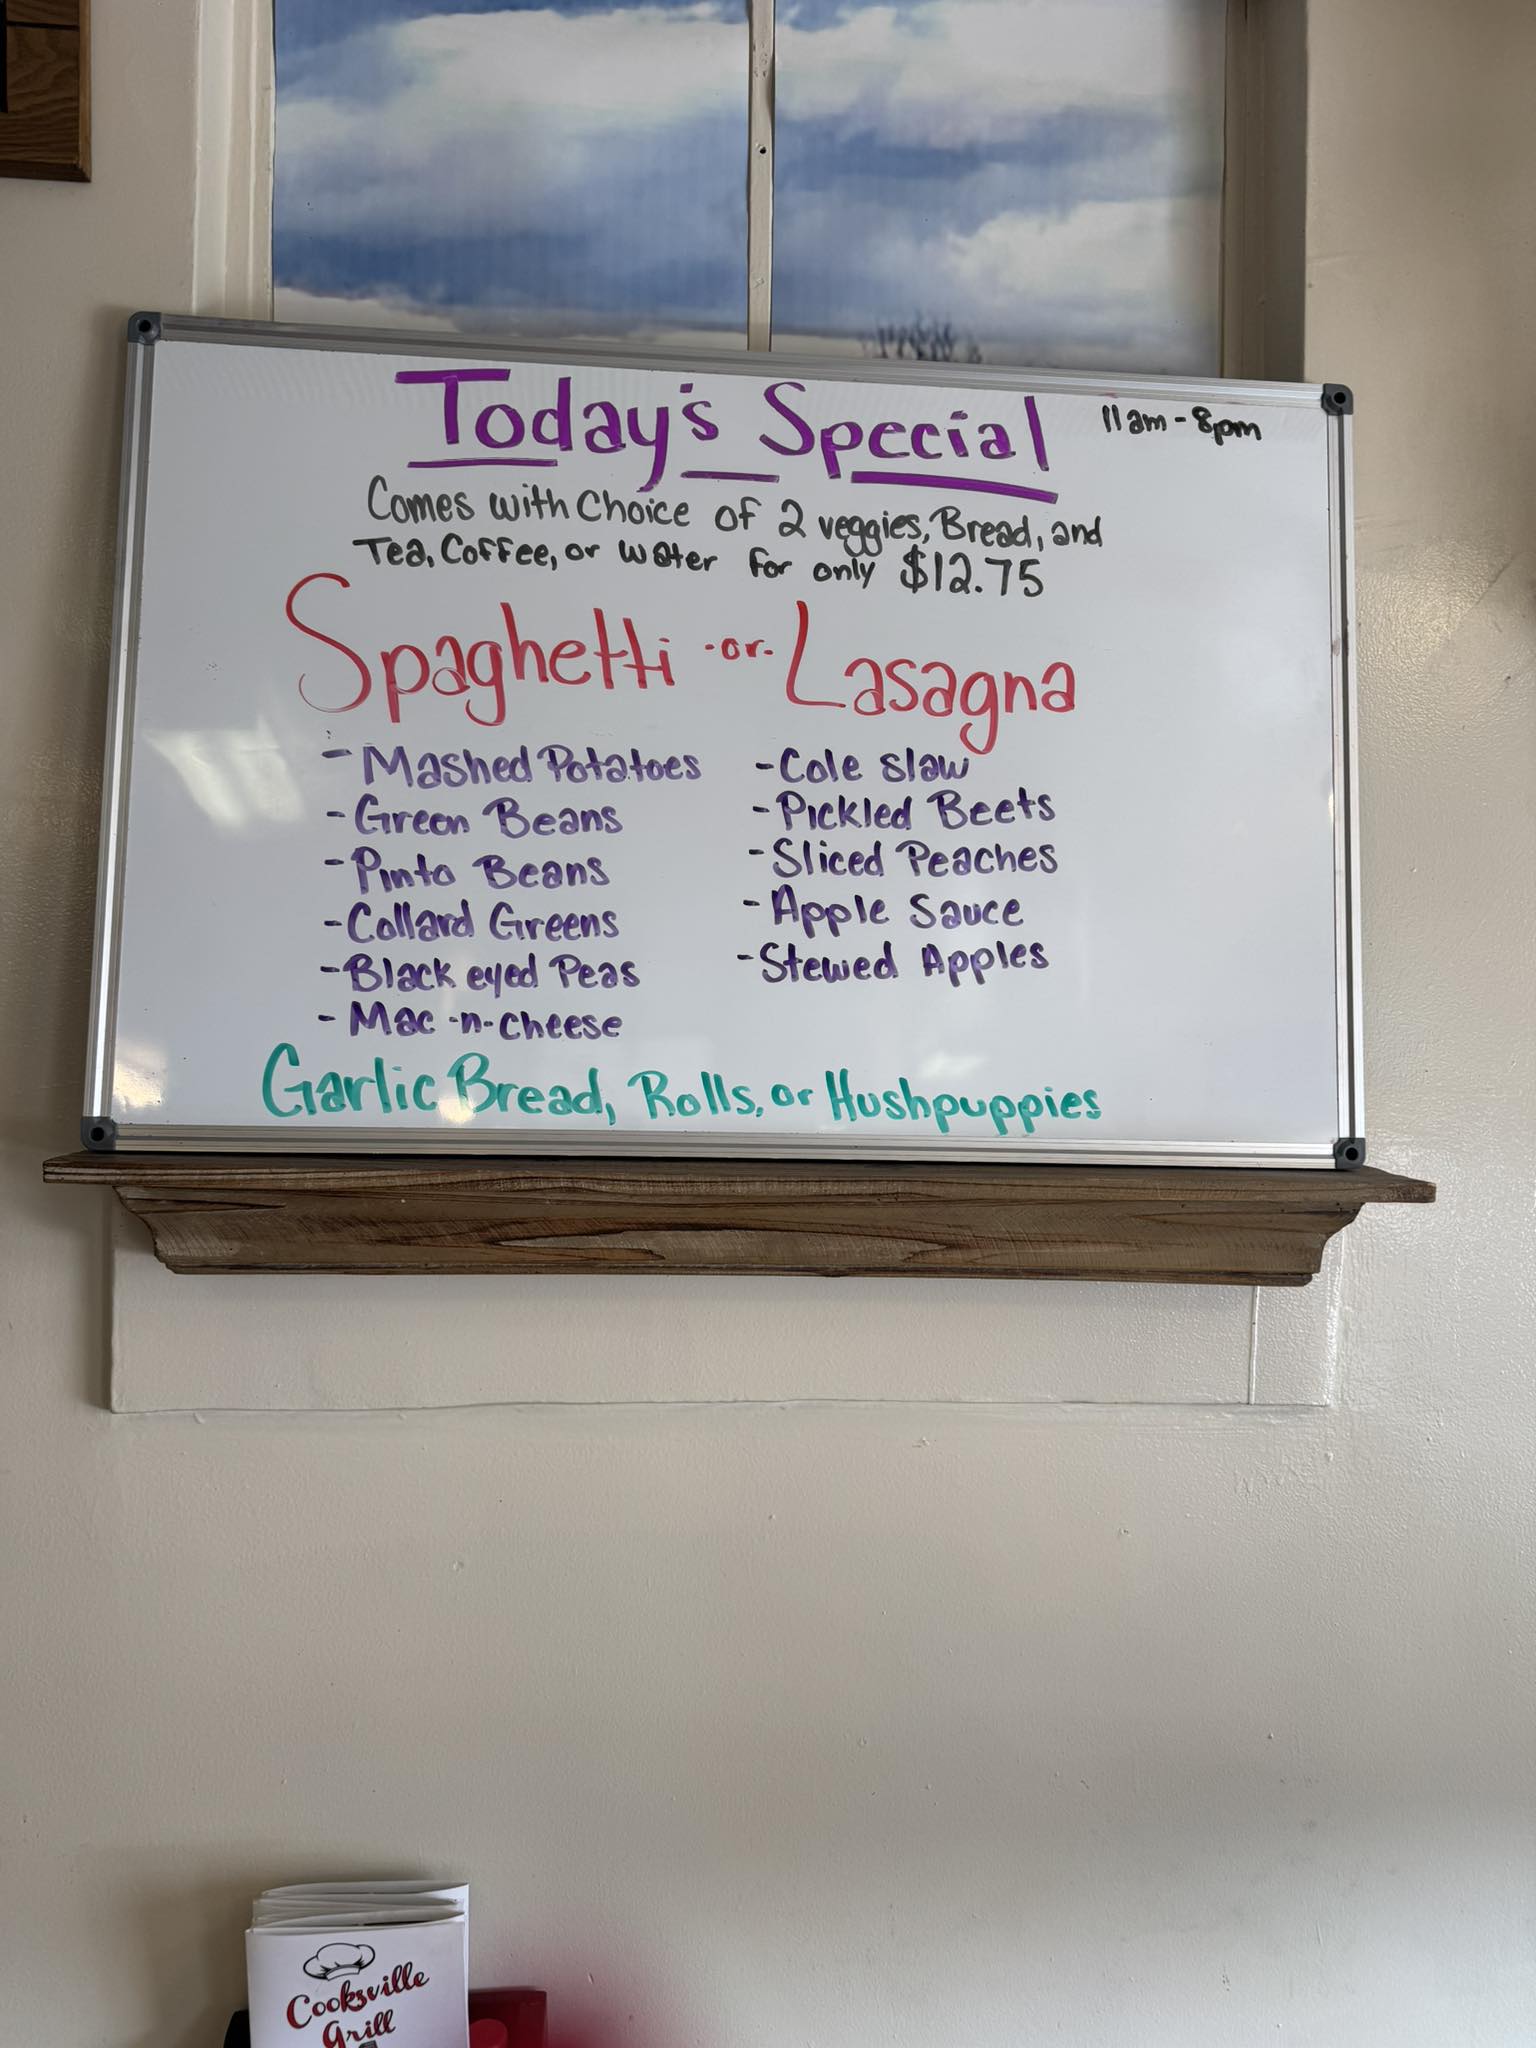 Today's Special
11am - 8pm
Comes with Choice of 2 veggies, Bread, and
Tea, Coffee, or Water for only $12.75
Spaghetti -or- Lasagna
- Mashed Potatoes
- Green Beans
- Pinto Beans
- Collard Greens
- Black eyed Peas
- Mac -n- cheese
- Cole slaw
- Pickled Beets
- Sliced Peaches
- Apple Sauce
- Stewed Apples
Garlic Bread, Rolls, or Hushpuppies
Cooksville
Grill